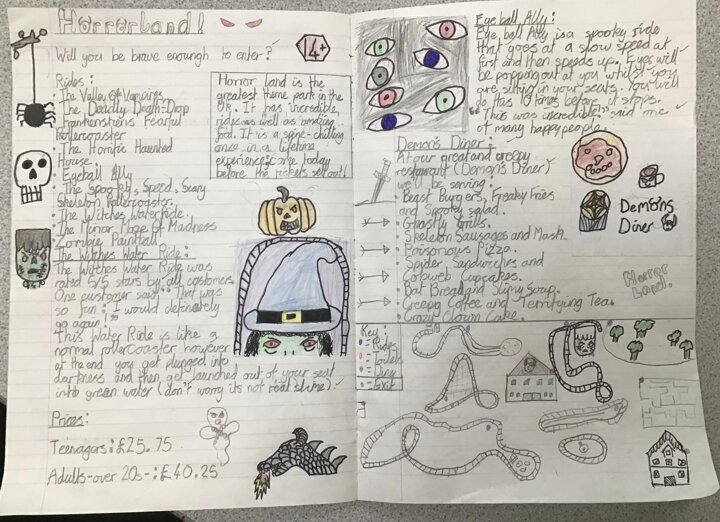 Horrorland!
14+
Will you be brave enough to enter?
Rides:
The Valley Of Vampires
The Deadly Death-Drop
Frankensteins Fearful
Rollercoaster
The Horrific Haunted
House.
Eyeball Ally
The Spooky, Speed, Scary
Skeleton rollercoaster.
The Witches Waterride.
The Mirror Maze of Madness
Zombie Paintball
Horror land is the
greatest theme park in the
UK. It has incredible,
rides as well as amazing
food. It is a spine-chilling
once in a lifetime
experience; come today
before the tickets sell out!
The Witches Water Ride:
The Witches Water Ride was
rated 5/5 stars by all customers
One customer said "That was
so fun! I would definately
go again!"
This Water Ride is like a
normal rollercoaster however
at the end you get plunged into
darkness and then get launched out of your seat
into green water (don't worry its not real slime)
Prices:
Teenagers: £25.75
Adults-over 20s-: £40.25
Eyeball Ally:
Eyeball Ally is a spooky ride
that goes at a slow speed at
first and then speeds up. Eyes will
be popping out at you whilst you
are sitting in your seats. You will
do this 10 times before it stops.
"This was incredible!" said one
of many happy people.
Demon's Diner:
At our great and creepy
restaurant (Demon's Diner)
we'll be serving:
Beast Burgers, Freaky Fries
and Spooky salad.
Ghastly Grills.
Skeleton Sausages and Mash.
Poisonous Pizza.
Spider Sandwiches and
Cobweb Cupcakes.
Bat Bread and Slimy Soup.
Creepy Coffee and Terrifying Tea.
Crazy Clown Cake.
Demons
Diner
Horror
Land.
Key:
= Rides
= Toilets
= Diner
= Exit